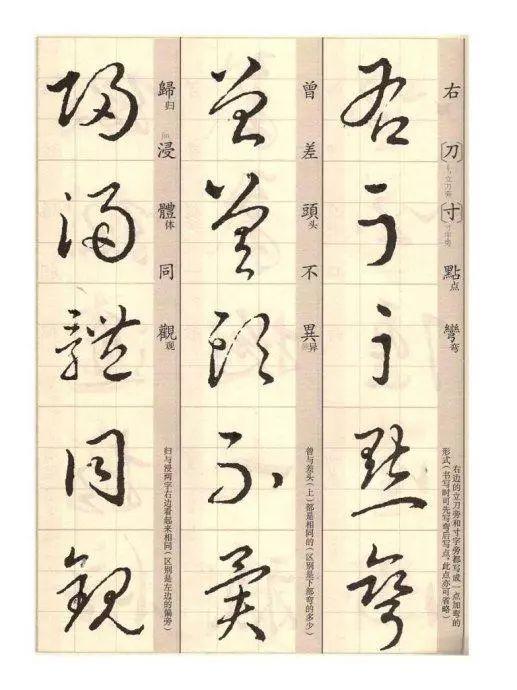 右〔刀〕〔寸〕點点彎弯
右边的立刀旁和寸字旁都写成一点加弯的
形式(书写时可先写弯后写点,此点亦可省略)
右刀寸點彎
曾差頭头不異异
曾与差头(上)都是相同的(区别是下部弯的多少)
曾差頭不異
歸归浸jìn體体同觀观
归与浸两字右边看起来相同(区别是左边的偏旁)
歸浸體同觀